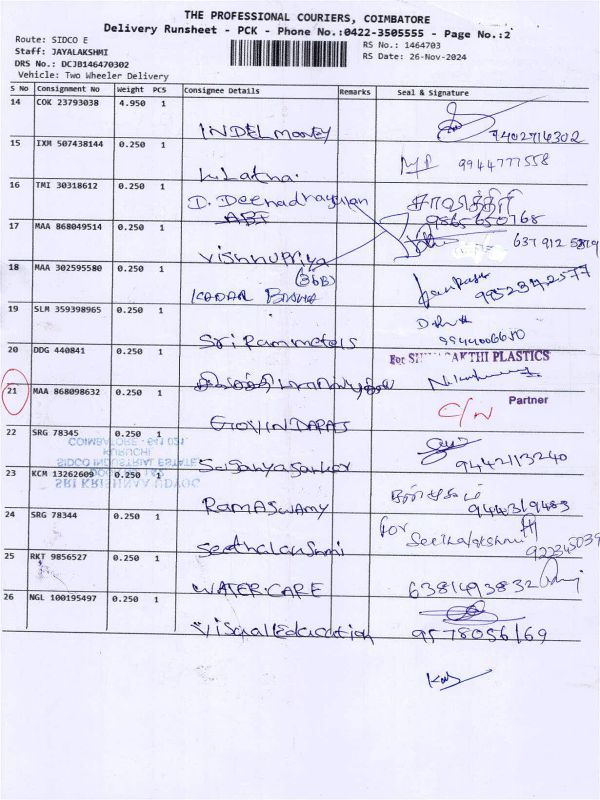 THE PROFESSIONAL COURIERS, COIMBATORE
Delivery Runsheet - PCK - Phone No.:0422-3505555 - Page No.:2
Route: SIDCO E
RS No.: 1464703
Staff: JAYALAKSHMI
RS Date: 26-Nov-2024
DRS No.: DCJB146470302
Vehicle: Two Wheeler Delivery
S No Consignment No Weight PCS Consignee Details Remarks Seal & Signature
14 COK 23793038 4.950 1
INDEL MONEY 9402716302
15 IXM 507438144 0.250 1
K. Latha. 9944777558
16 TMI 30318612 0.250 1
D. Deenadhayalan சாவித்திரி
ABT
17 MAA 868049514 0.250 1
Vishnu Priya
18 MAA 302595580 0.250 1
(36B)
KADAR BASHA 9952342577
19 SLM 359398965 0.250 1
Sri Ram metals 9944006650
20 DDG 440841 0.250 1
PLASTICS
21 MAA 868098632 0.250 1
Partner
C/N
GOVINDARAJ
22 SRG 78345 0.250 1
COIMBATORE - 641 021
KURUCHI
SIDCO INDUSTRIAL ESTATE
SRI KRISHNAA UDYOG
9442113240
23 KCM 13262609 0.250 1
RAMASWAMY 9444319483
24 SRG 78344 0.250 1
for Seethalakshmi
Seethalakshmi
25 RKT 9856527 0.250 1
WATER-CARE 6381493832
26 NGL 100195497 0.250 1
Visual Education 9578056169